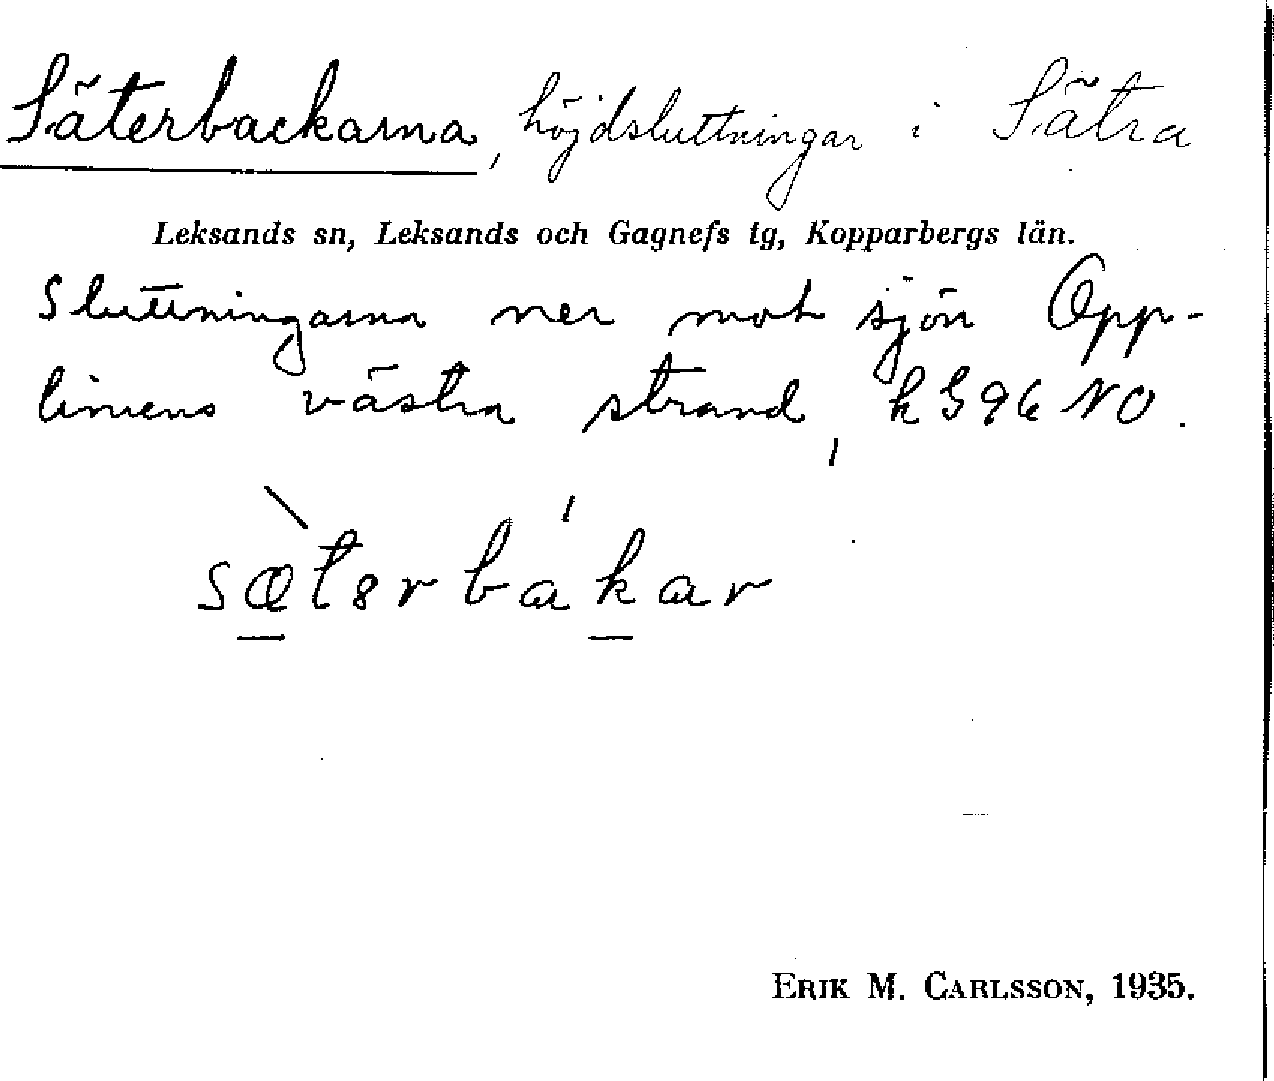 Säterbackarna, höjdsluttningar i Sätra
Leksands sn, Leksands och Gagnefs tg, Kopparbergs län.
Sluttningarna ner mot sjön Opp-
limens västra strand, k G96 NO.
sætərbakar
ERIK M. CARLSSON, 1935.